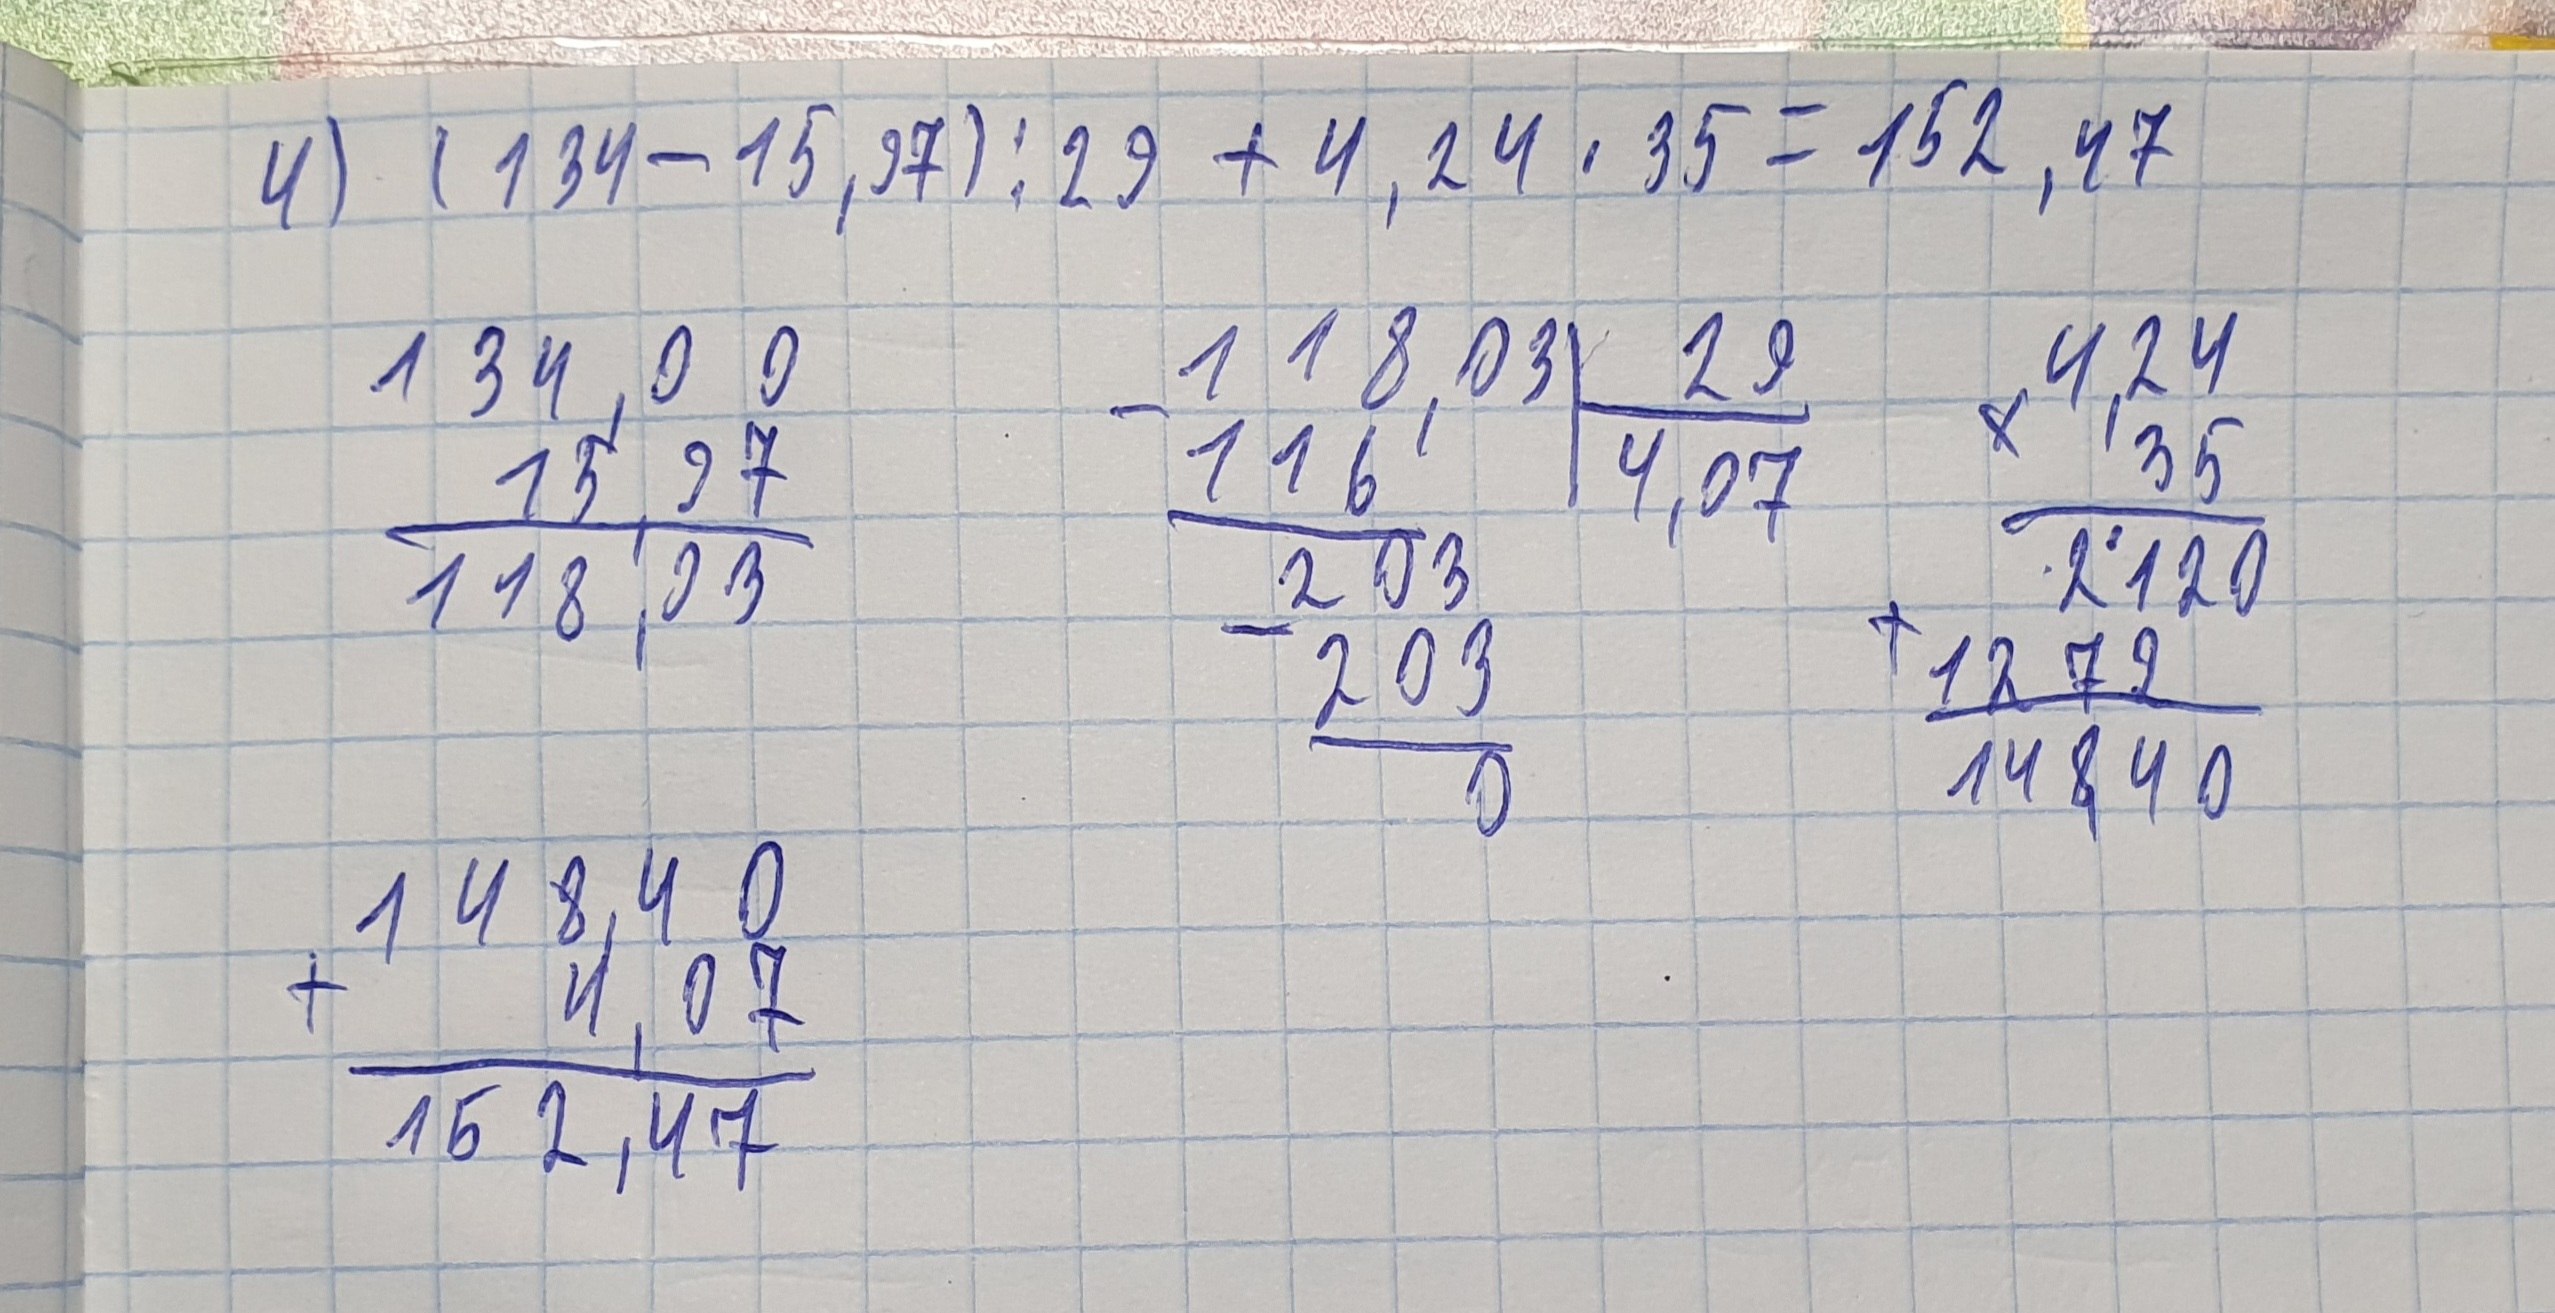 4) (134 - 15,97) : 29 + 4,24 · 35 = 152,47
134,00
15,97
118,03
- 118,03 | 29
116 | 4,07
203
- 203
0
× 4,24
35
2120
+ 1272
148,40
148,40
+ 4,07
152,47